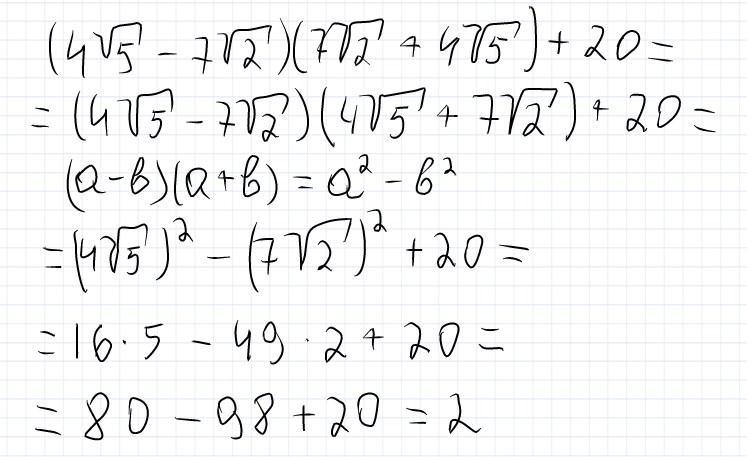 (4√5 - 7√2)(7√2 + 4√5) + 20 =
= (4√5 - 7√2)(4√5 + 7√2) + 20 =
(a-b)(a+b) = a² - b²
= (4√5)² - (7√2)² + 20 =
= 16·5 - 49·2 + 20 =
= 80 - 98 + 20 = 2